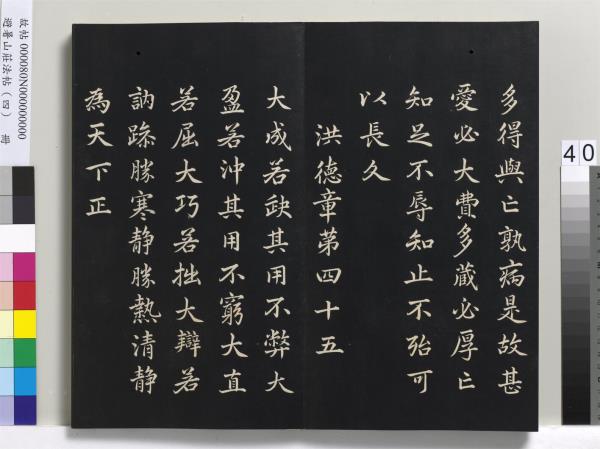 多得與亡孰病是故甚
愛必大費多藏必厚亡
知足不辱知止不殆可
以長久
洪德章第四十五
大成若缺其用不弊大
盈若沖其用不窮大直
若屈大巧若拙大辯若
訥躁勝寒静勝熱清静
為天下正
故帖 000080N000000000
避暑山莊法帖(四) 冊
40